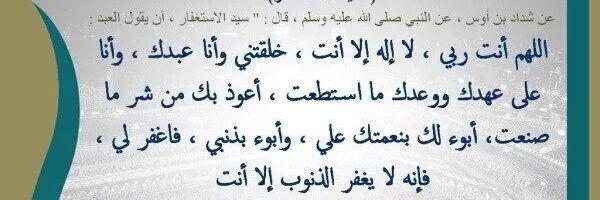 عن شداد بن أوس ، عن النبي صلى الله عليه وسلم ، قال : " سيد الاستغفار ، أن يقول العبد :
اللهم أنت ربي ، لا إله إلا أنت ، خلقتني وأنا عبدك ، وأنا
على عهدك ووعدك ما استطعت ، أعوذ بك من شر ما
صنعت، أبوء لك بنعمتك علي ، وأبوء بذنبي ، فاغفر لي ،
فإنه لا يغفر الذنوب إلا أنت